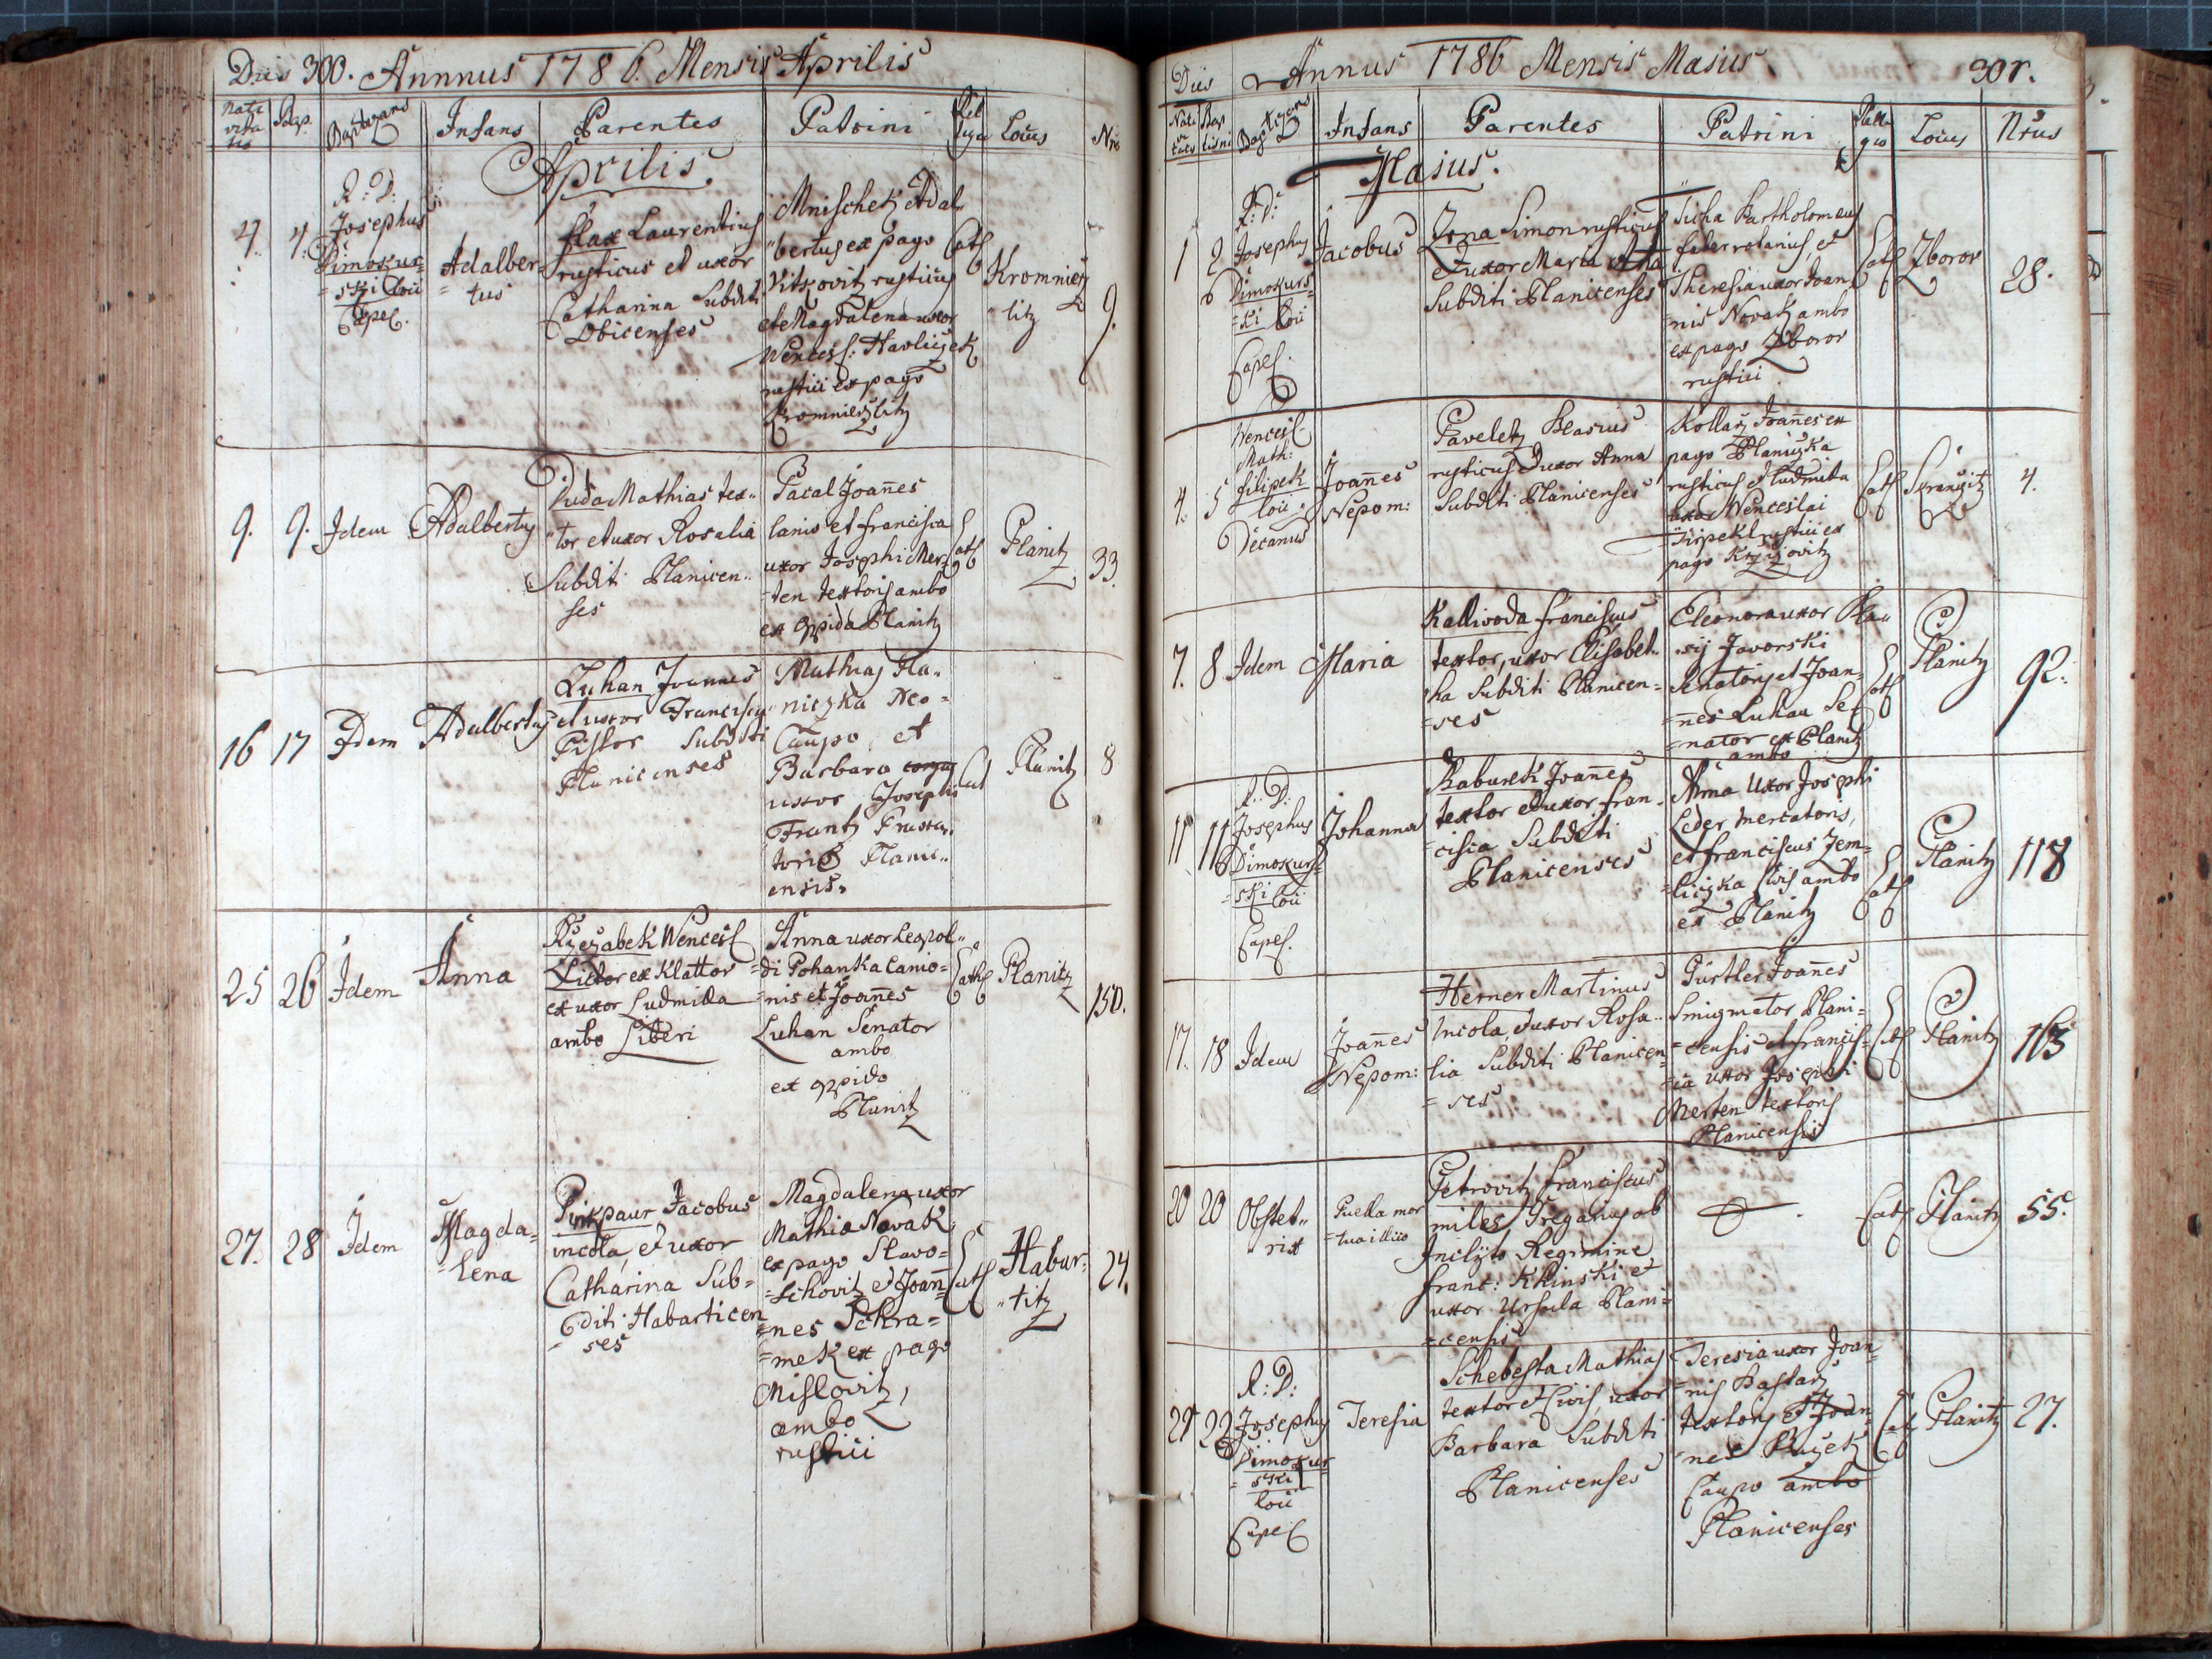 Dies 300. Annnus 1786. Mensis Aprilis
Nati vita tis Bap. Baptizans Infans Parentes Patrini Religio Locus Nrus
Aprilis.
4. 4.
R: D:
Josephus
Dimokur=
=ski loci
Capel.
Adalber=
=tus
Flax Laurentius
rusticus et uxor
Catharina Subditi
Obicenses
Mnischek Adal
bertus ex pago
Vitkovitz rusticus
et Magdalena uxor
Wencesl: Havliczek
rustici ex pago
Kromnierzlitz
Cath
Kromnierz
=litz
9.
9. 9. Idem Adalbertus
Puda Mathias tex..
tor et uxor Rosalia
Subditi Planicen..
ses
Pacal Joannes
lanio et Francisca
uxor Josephi Mer=
=ten textoris ambo
ex oppido Planitz
Cath
Planitz
33.
16 17 Idem Adalbertus
Luhan Joannes
et uxor Francisca
Pistor Subditi
Planicenses
Mathias Pla..
niczka Neo=
Caupo, et
Barbara
uxor Josephi
Frantz
toris Plani..
ensis.
Cat
Planitz
8
25 26 Idem Anna
Rzezabek Wencesl
Lictor ex Klattor
et uxor Ludmilla
ambo Liberi
Anna uxor Leopol..
=di Pohanka lanio=
=nis et Joannes
Luhan Senator
ambo
ex oppido
Planitz
Cath
Planitz
150.
27. 28 Idem
Magda=
=lena
Pirkpaur Jacobus
incola, et uxor
Catharina Sub=
diti Habarticen
=ses
Magdalena uxor
Mathiae Novak
ex pago Slavo=
=schovitz et Joan=
=nes Schra=
=mek ex pago
Mislovitz,
ambo
rustici
Cath
Habar:
=titz
24.
Dies Annus 1786 Mensis Majus. 301.
Nati vi tatis Bap tismi Baptizans Infans Parentes Patrini Relligio Locus Nrus
Majus.
1 2
R: D:
Josephus
Dimokurs=
=ki loci
Capel.
Jacobus
Zona Simon rusticus
et uxor Maria Anna
Subditi Planicenses
Sicha Bartholomeus
faber rotarius et
Theresia uxor Joan=
=nis Novak ambo
ex pago Zboror
rustici
Cath
Zboror
28.
4. 5
Wencesl
Math:
Filipek
loci
Decanus
Joannes
Nepom:
Paveletz Blasius
rusticus et uxor Anna
Subditi Planicenses
Kollarz Joannes ex
pago Planiczka
rusticus et Ludmila
uxor Wenceslai
Tirpekl rustici ex
pago
Cath
4.
7. 8 Idem Maria
Kallivoda Franciscus
textor, uxor Elisabet..
ha Subditi Planicen=
=ses
Eleonora uxor Bla..
sij Javorski
Senatoris et Joan=
=nes Luhan Se=
=nator ex Planitz
ambo
Cath
Planitz
92.
11 11
R: D:
Josephus
Dimokurs=
=ski loci
Capel.
Johanna
Kaburek Joannes
textor et uxor Fran=
=cisca Subditi
Planicenses
Anna Uxor Josephi
Leder mercatoris,
et Franciscus Zem=
=liczka Civis ambo
ex Planitz
Cath
Planitz
118
17. 18 Idem
Joannes
Nepom:
Herner Martinus
Incola, et uxor Rosa..
lia Subditi Planicen
=ses
Gürtler Joannes
Smigmator Plani=
=censis et Francis=
=ca uxor Josephi
Merten textoris
Planicensis
Cath
Planitz
163
20 20
Obstet..
rix
Puella mor
=tua illico
Petrovitz Franciscus
miles Gregarius ob
Inclyto Regimine
Franc: Khinski et
uxor Ursula Plani=
=censis
Cath
Planitz
55.
21 22
R: D:
Josephus
Dimokur=
=ski
loci
Capel
Teresia
Schebesta Mathias
textor et Civis, uxor
Barbara Subditi
Planicenses
Teresia uxor Joan=
=nis Bastarz
textoris et Joan=
=nes Buzek
Caupo ambo
Planicenses
Cath
Planitz
27.